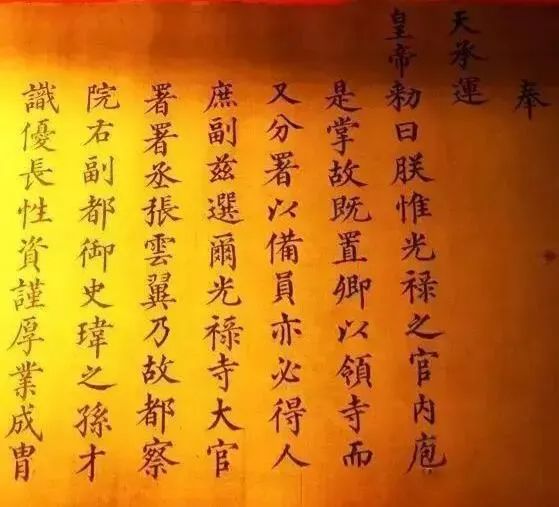 奉
天承運
皇帝勑曰朕惟光禄之官内庖
是掌故既置卿以領寺而
又分署以備員亦必得人
庶副兹選爾光禄寺大官
署署丞張雲翼乃故都察
院右副都御史瑋之孫才
識優長性資謹厚業成胄